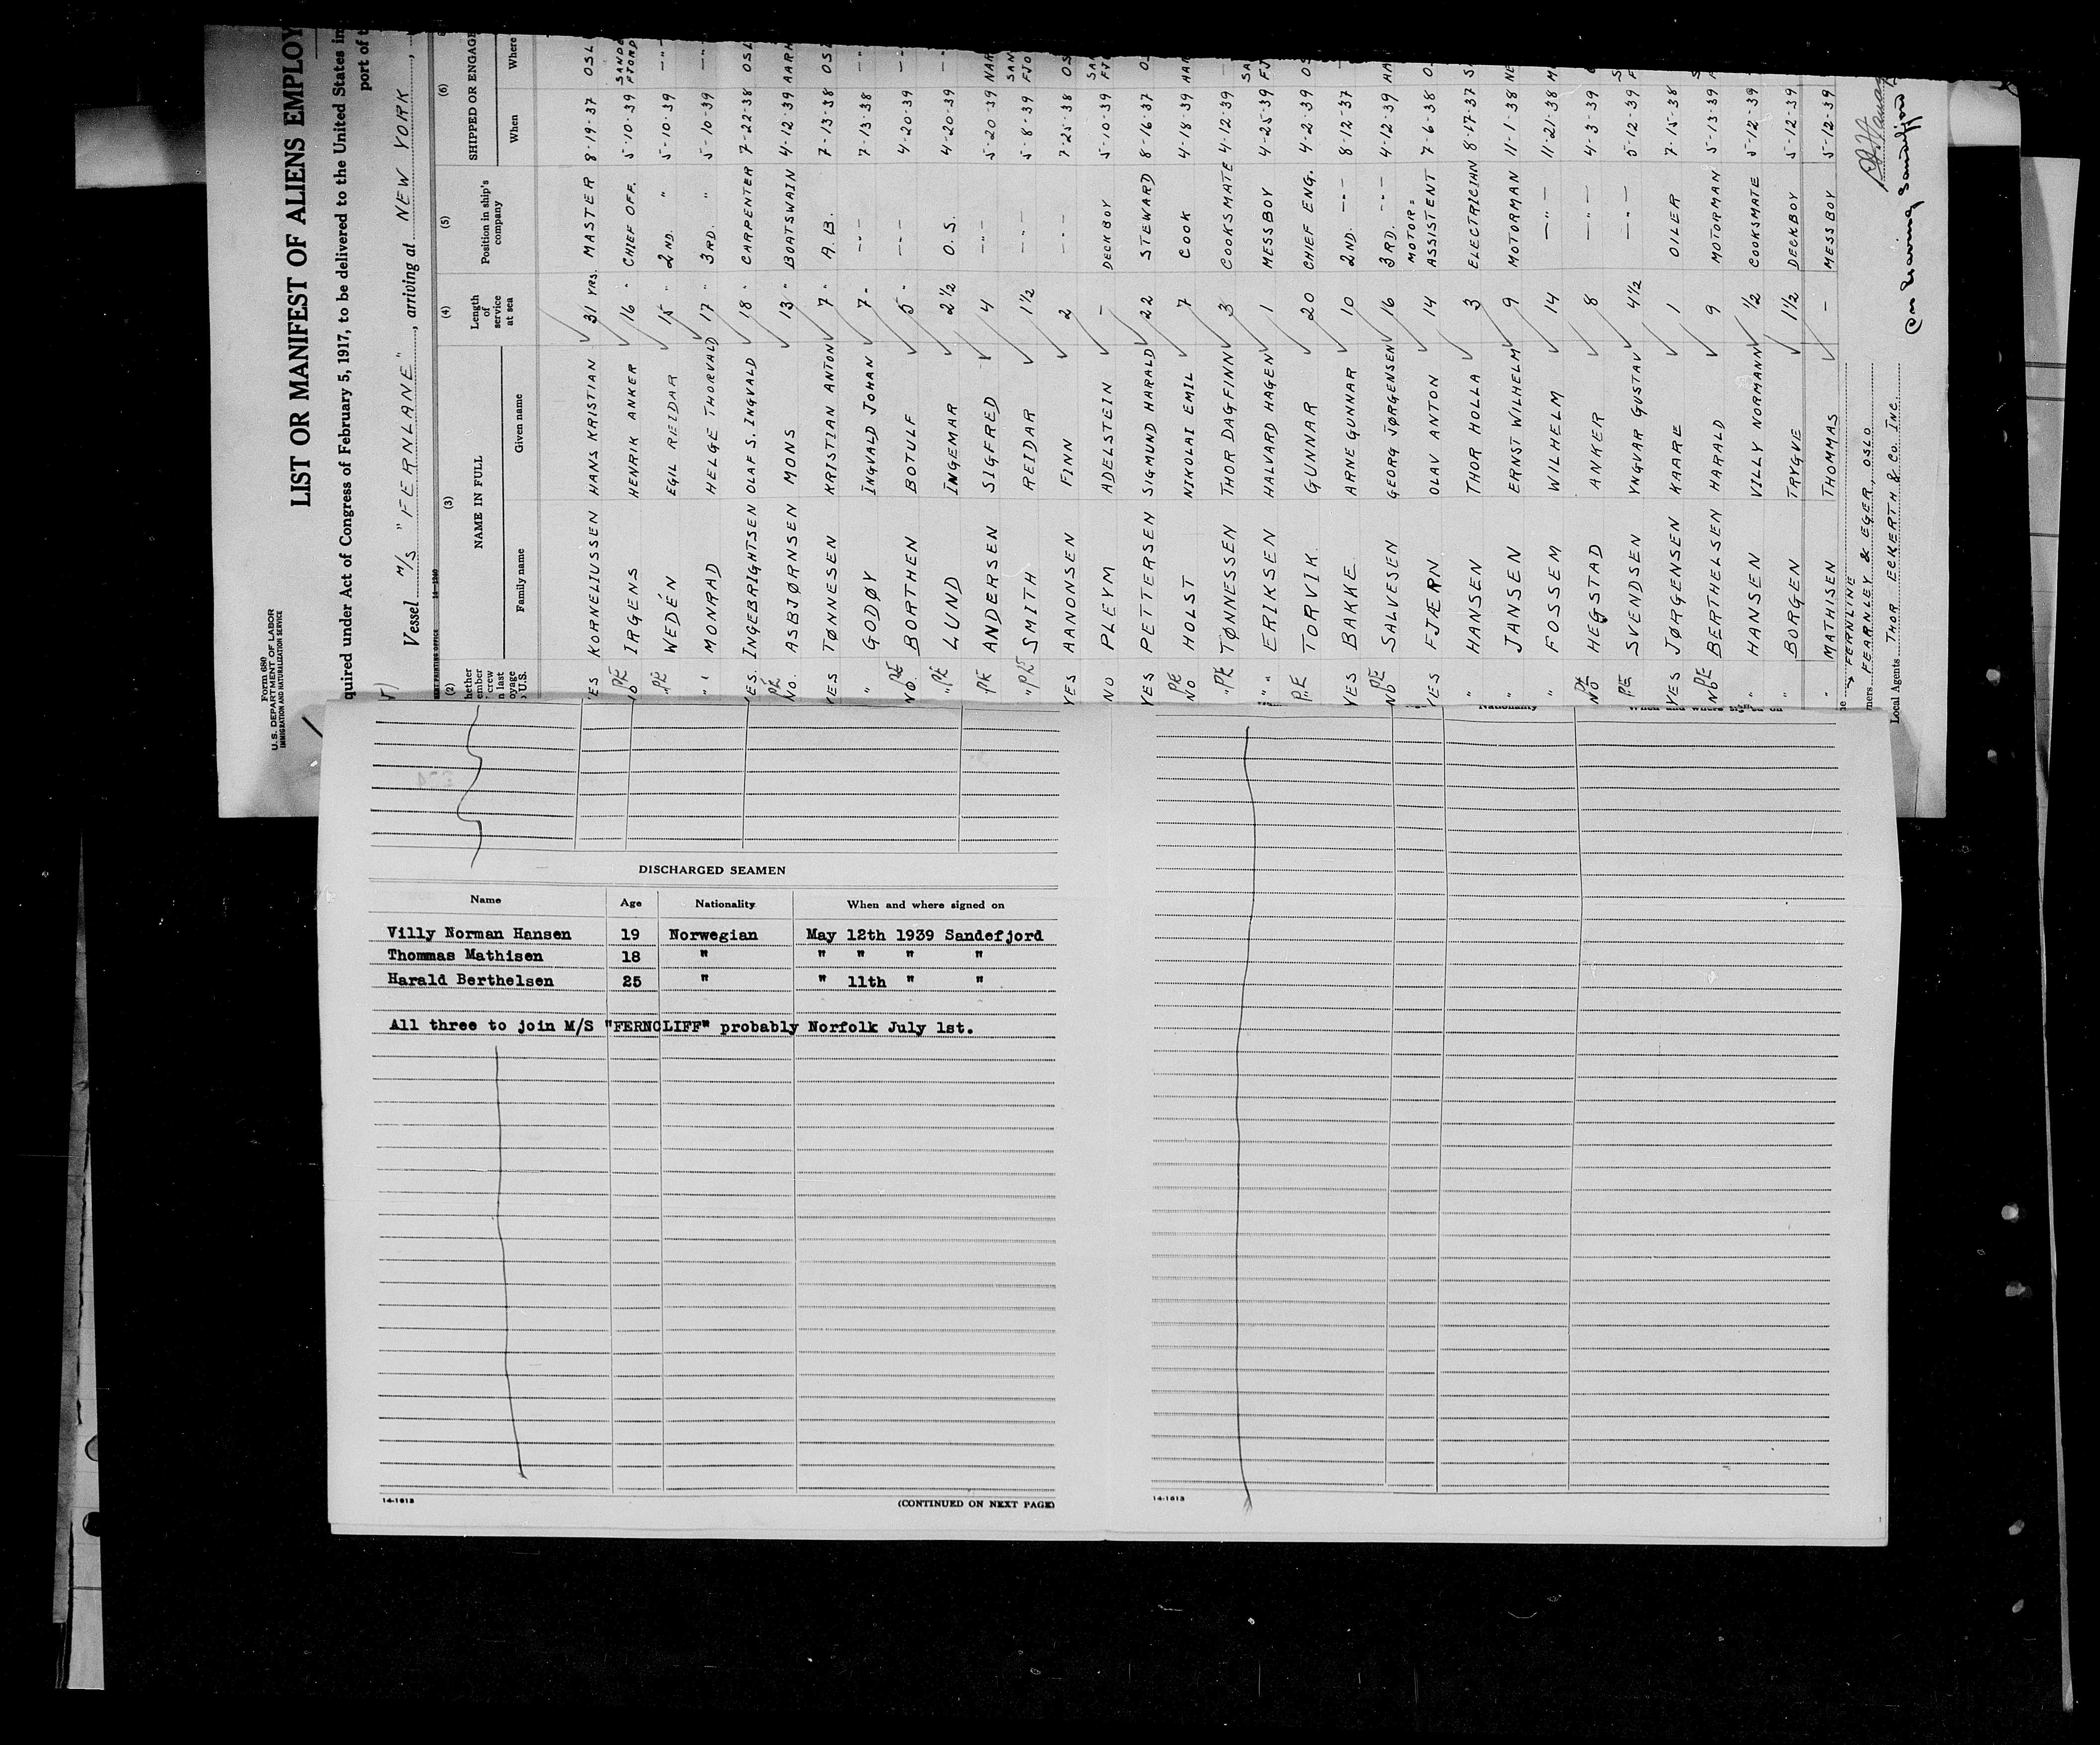 Form 680
U. S. DEPARTMENT OF LABOR
IMMIGRATION AND NATURALIZATION SERVICE
LIST OR MANIFEST OF ALIENS EMPLOY
quired under Act of Congress of February 5, 1917, to be delivered to the United States
port of
Vessel M/S "FERNLANE", arriving at NEW YORK
(2) (3) (4) (5) (6)
NAME IN FULL
Family name Given name
Length of service at sea
Position in ship's company
SHIPPED OR ENGAGE
When Where
YES KORNELIUSSEN HANS KRISTIAN 31 YRS. MASTER 8-19-37 OSL
NO PE IRGENS HENRIK ANKER 16 " CHIEF OFF. 5-10-39 SANDE FJORD
PE WEDÉN EGIL REIDAR 15 " 2ND. " 5-10-39 -"-
" MONRAD HELGE THORVALD 17 " 3RD. " 5-10-39 -"-
YES. INGEBRIGHTSEN OLAF S. INGVALD 18 " CARPENTER 7-22-38 OSL
PE NO. ASBJØRNSEN MONS 13 " BOATSWAIN 4-12-39 AARH
YES TØNNESEN KRISTIAN ANTON 7 " A.B. 7-13-38 OSL
" GODØY INGVALD JOHAN 7 " -"- 7-13-38 -"-
NO. PE BORTHEN BOTULF 5 " -"- 4-20-39 -"-
" PE LUND INGEMAR 2½ O.S. 4-20-39 -"-
PE ANDERSEN SIGFRED 4 -"- 5-20-39 NAR
" PE SMITH REIDAR 1½ -"- 5-8-39 SAN FJO
YES AANONSEN FINN 2 -"- 7-25-38 OS
NO PLEYM ADELSTEIN - DECKBOY 5-10-39 SA FJ
YES PETTERSEN SIGMUND HARALD 22 STEWARD 8-16-37 O
PE NO HOLST NIKOLAI EMIL 7 COOK 4-18-39 HA
" PE TØNNESSEN THOR DAGFINN 3 COOKSMATE 4-12-39
" " ERIKSEN HALVARD HAGEN 1 MESSBOY 4-25-39 SA FJ
PE TORVIK GUNNAR 20 CHIEF ENG. 4-2-39 OS
YES BAKKE ARNE GUNNAR 10 2ND. -"- 8-12-37
NO PE SALVESEN GEORG JØRGENSEN 16 3RD. -"- 4-12-39 HA
YES FJÆRN OLAV ANTON 14 MOTOR= ASSISTENT 7-6-38 O
" HANSEN THOR HOLLA 3 ELECTRICIAN 8-17-37 S
" JANSEN ERNST WILHELM 9 MOTORMAN 11-1-38 NE
" FOSSEM WILHELM 14 -"- 11-21-38 M
PE NO HEGSTAD ANKER 8 -"- 4-3-39
PE SVENDSEN YNGVAR GUSTAV 4½ -"- 5-12-39 S F
YES JØRGENSEN KAARE 1 OILER 7-15-38
NO PE BERTHELSEN HARALD 9 MOTORMAN 5-13-39
" HANSEN VILLY NORMANN ½ COOKSMATE 5-12-39
" BORGEN TRYGVE 1½ DECKBOY 5-12-39
" MATHISEN THOMMAS - MESSBOY 5-12-39
FERNLINE
FEARNLEY & EGER, OSLO
Local Agents THOR ECKERTH & Co. Inc.
DISCHARGED SEAMEN
Name Age Nationality When and where signed on
Villy Norman Hansen 19 Norwegian May 12th 1939 Sandefjord
Thommas Mathisen 18 " " " " "
Harald Berthelsen 25 " " 11th " "
All three to join M/S "FERNCLIFF" probably Norfolk July 1st.
14-1613 (CONTINUED ON NEXT PAGE)
Nationality When and where signed on
14-1613